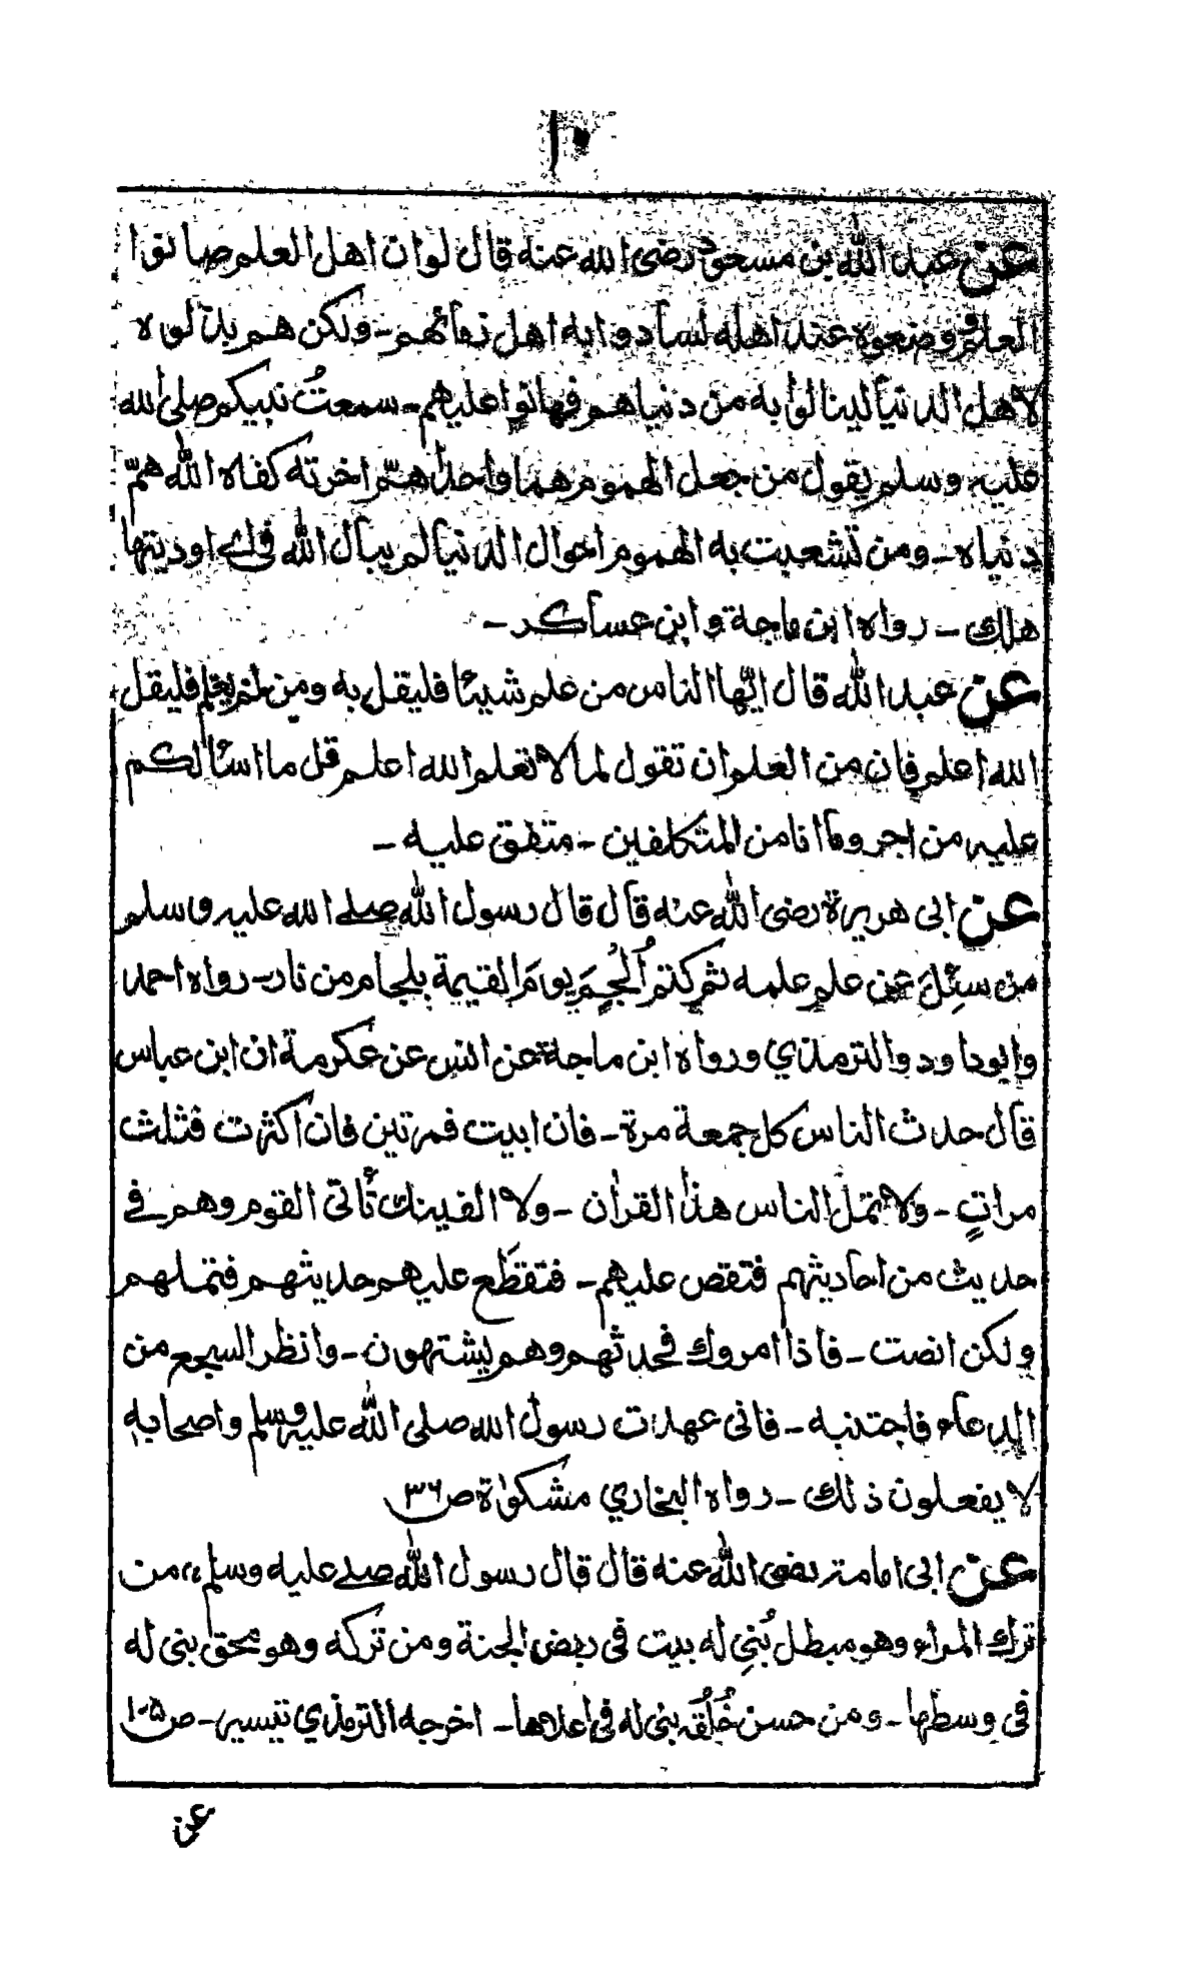 ١٠
عن عبد الله بن مسعود رضى الله عنه قال لو ان اهل العلم صانوا
العلم وضعوه عند اهله لسادوا به اهل زمانهم - ولكن هم بذلوه
لاهل الدنيا لينالوا به من دنياهم فهانوا عليهم - سمعتُ نبيكم صلى الله
عليه وسلم يقول من جعل الهموم هما واحدا همّ اخرته كفاه الله همّ
دنياه - ومن تشعبت به الهموم احوال الدنيا لم يبال الله فى اے اوديتها
هلك - رواه ابن ماجة و ابن عساكر -
عن عبد الله قال ايّها الناس من علم شيئا فليقل به ومن لم يعلم فليقل
الله اعلم فان من العلم ان تقول لما لا تعلم الله اعلم قل ما اسألكم
عليه من اجر وما انا من المتكلفين - متفق عليه -
عن ابى هريرة رضى الله عنه قال قال رسول الله صلے الله عليه وسلم
من سئِلَ عن علم علمه ثم كتم اُلْجِمَ يومَ القيمة بلجام من نار - رواه احمد
وابوداود والترمذي ورواه ابن ماجة عن انس عن عكرمة ان ابن عباس
قال حدث الناس كل جمعة مرة - فان ابيت فمرتين فان اكثرت فثلث
مراتٍ - ولا تملّ الناس هذا القراٰن - ولا الفينك تأتى القوم وهم فے
حديث من احاديثهم فتقص عليهم - فتقطَع عليهم حديثهم فتملهم
ولكن انصت - فاذا امروك فحدثهم وهم يشتهون - وانظر السجع من
الدعاء فاجتنبه - فانى عهدت رسول الله صلى الله عليه وسلم واصحابه
لا يفعلون ذلك - رواه البخاري مشكوٰة ص ٣٦
عن ابى امامة رضى الله عنه قال قال رسول الله صلے عليه وسلم، من
ترك المراء وهو مبطل بُنِي له بيت فى ربض الجنة ومن تركه وهو محق بنى له
فى وسطها - ومن حسن خُلُقه بنى له فى اعلاها - اخرجه الترمذي تيسير - ص ١٠٥
عن